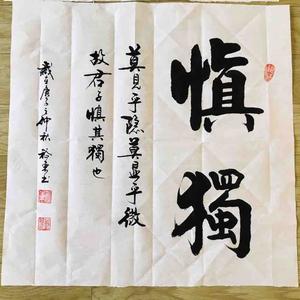 慎獨
莫見乎隐莫显乎微
故君子慎其獨也
歲在庚子仲秋